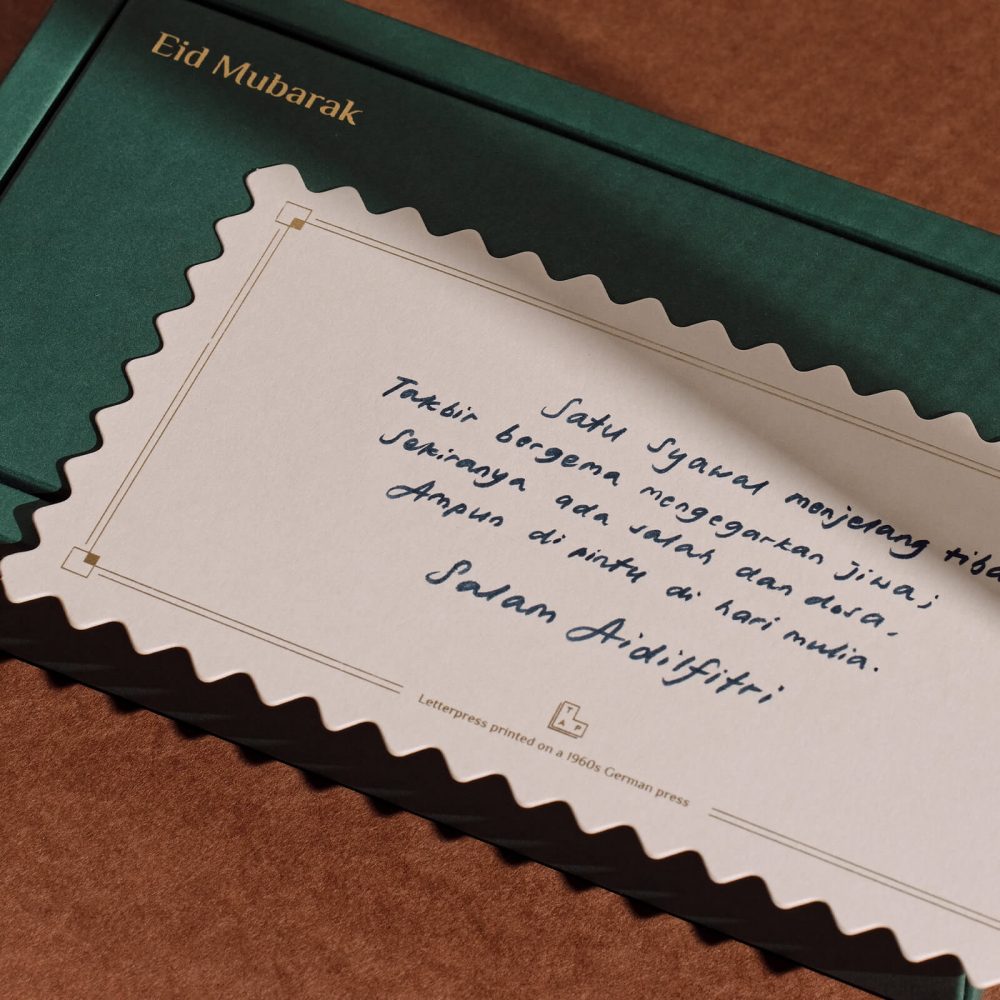 Eid Mubarak
Satu Syawal menjelang tiba
Takbir bergema mengegarkan jiwa;
Sekiranya ada salah dan dosa.
Ampun di pintu di hari mulia.
Salam Aidilfitri
T
A P
Letterpress printed on a 1960s German press